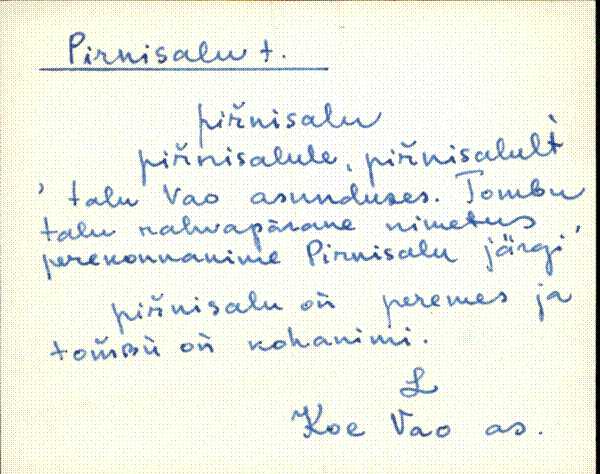 Pirnisalu t.
pir̆nisalu
pir̆nisalule, pir̆nisalult
' talu Vao asunduses. Tombu
talu rahvapärane nimetus
perekonnanime Pirnisalu järgi'
pir̆nisalu on̆ peremes ja
tom̆bu on̆ kohanimi.
L
Koe Vao as.